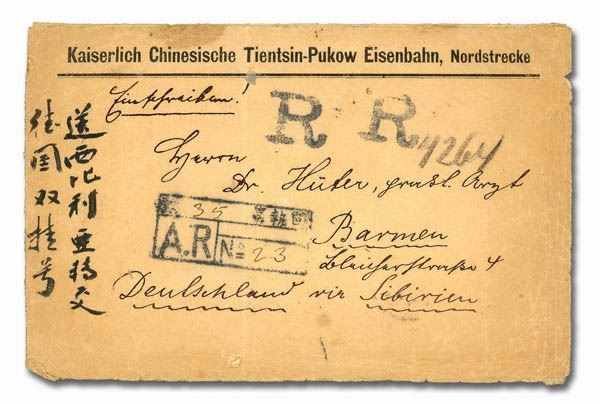 Kaiserlich Chinesische Tientsin-Pukow Eisenbahn, Nordstrecke
Einschreiben!
R R
4264
Herrn
Dr. Hüter, prakt. Arzt
Barmen
Bleicherstraße 4
Deutschland via Sibirien
35
A.R
No 23
送西比利亜
德国双挂号